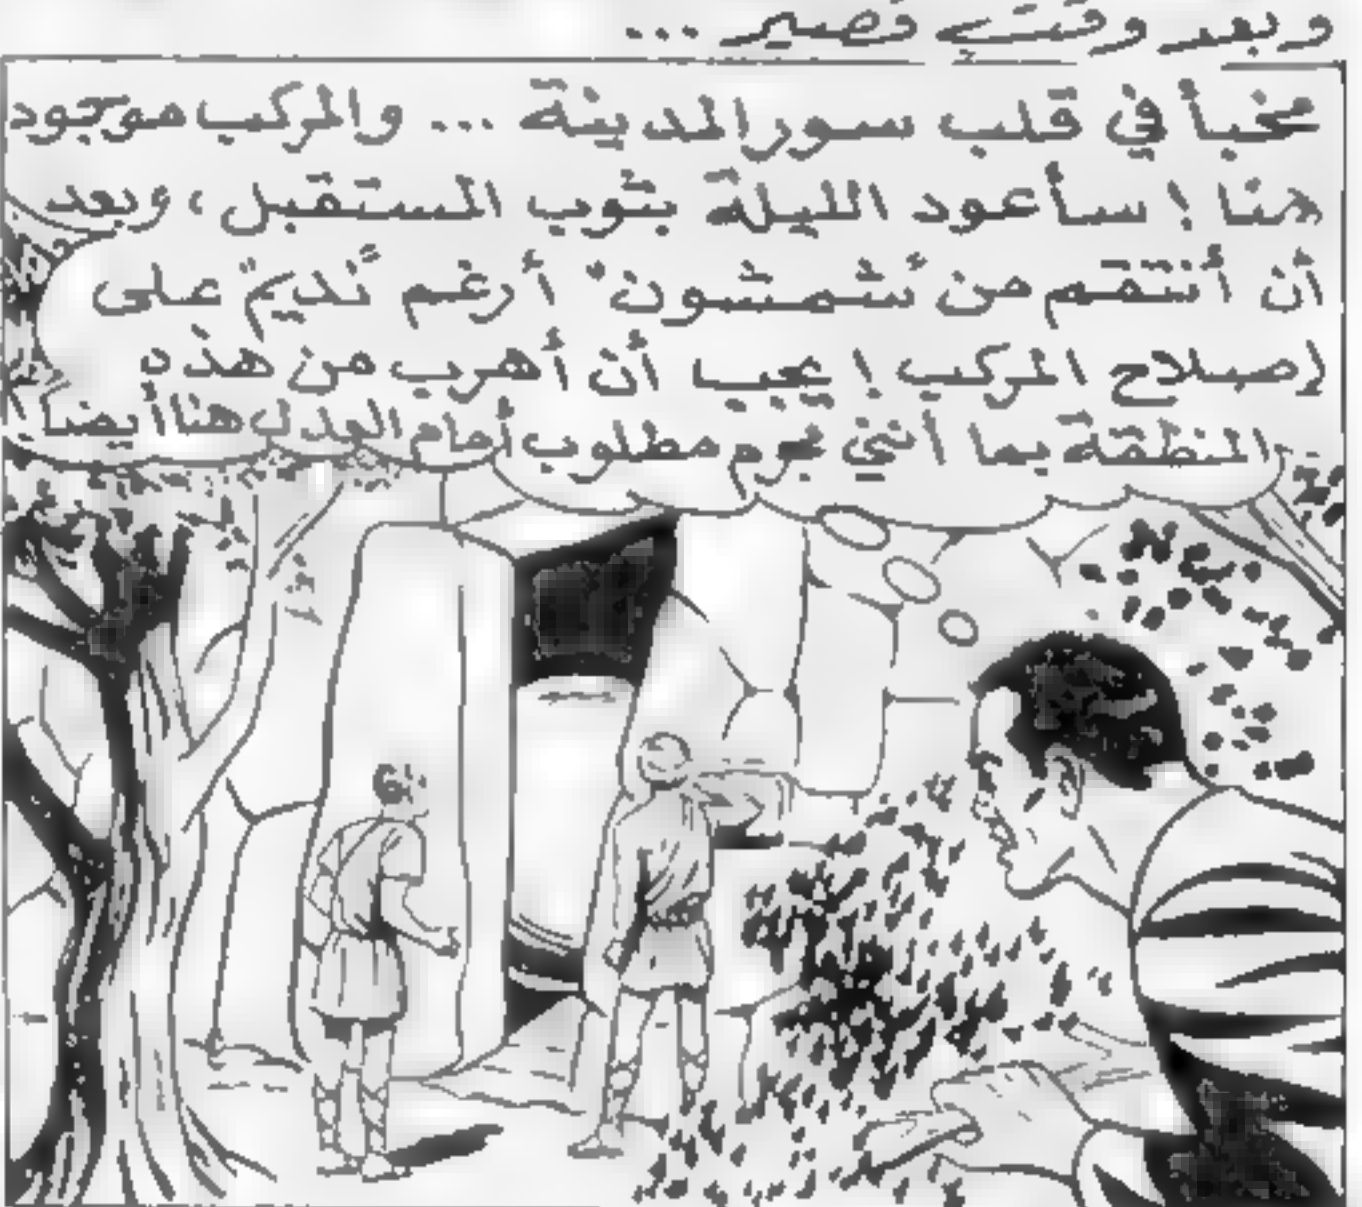 وبعد وقت قصير ...
مخبأ في قلب سور المدينة ... والمركب موجود
هنا ! سأعود الليلة بثوب المستقبل ، وبعد
أن أنتقم من "شمشون" أرغم "نديم" على
إصلاح المركب ! يجب أن أهرب من هذه
المنطقة بما أنني مجرم مطلوب أمام العدل هنا أيضا !